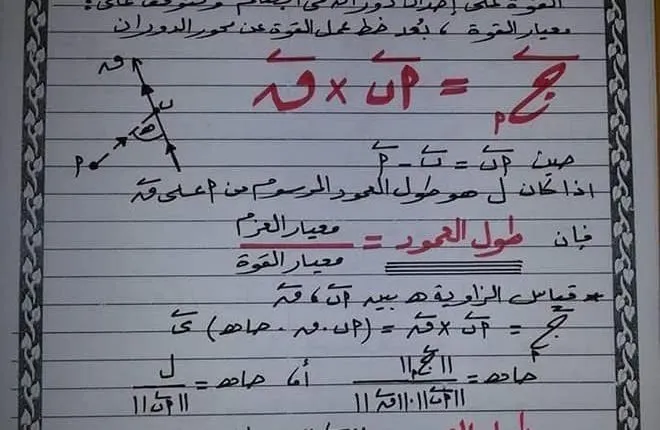 القوة على إحداث دوران في الجسم وتتوقف على:
معيار القوة ، بُعد خط عمل القوة عن محور الدوران
ج م = م ن × ق
حيث م ن = ن - م
اذا كان ل هو طول العمود المرسوم من م على ق
فإن طول العمود = معيار العزم / معيار القوة
* قياس الزاوية هـ بين م ن ، ق
ج م = م ن × ق = (م ن . ق . جا هـ) ي
جا هـ = ||ج م|| / ||ق||.||م ن|| أما جا هـ = ل / ||م ن||